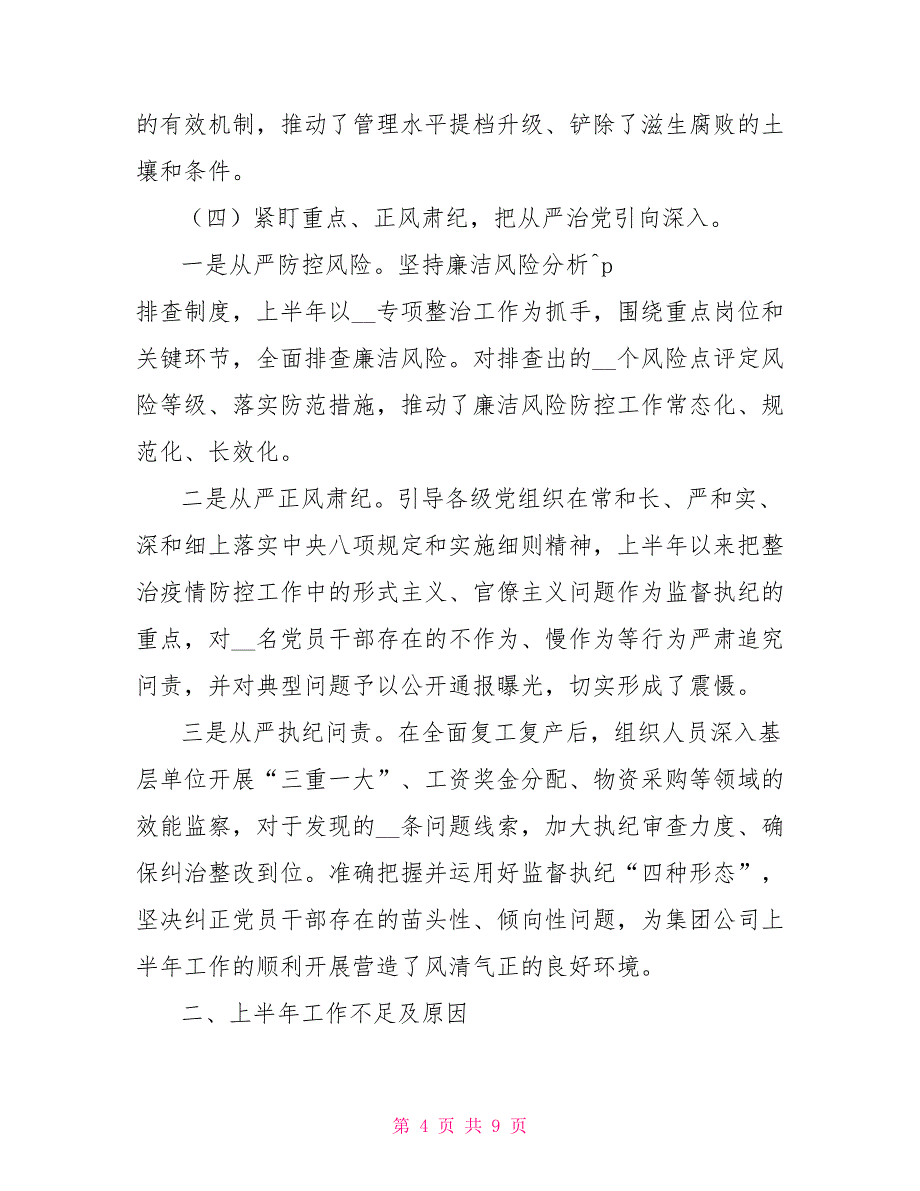 的有效机制，推动了管理水平提档升级、铲除了滋生腐败的土
壤和条件。
（四）紧盯重点、正风肃纪，把从严治党引向深入。
一是从严防控风险。坚持廉洁风险分析^p
排查制度，上半年以__专项整治工作为抓手，围绕重点岗位和
关键环节，全面排查廉洁风险。对排查出的__个风险点评定风
险等级、落实防范措施，推动了廉洁风险防控工作常态化、规
范化、长效化。
二是从严正风肃纪。引导各级党组织在常和长、严和实、
深和细上落实中央八项规定和实施细则精神，上半年以来把整
治疫情防控工作中的形式主义、官僚主义问题作为监督执纪的
重点，对__名党员干部存在的不作为、慢作为等行为严肃追究
问责，并对典型问题予以公开通报曝光，切实形成了震慑。
三是从严执纪问责。在全面复工复产后，组织人员深入基
层单位开展“三重一大”、工资奖金分配、物资采购等领域的
效能监察，对于发现的__条问题线索，加大执纪审查力度、确
保纠治整改到位。准确把握并运用好监督执纪“四种形态”，
坚决纠正党员干部存在的苗头性、倾向性问题，为集团公司上
半年工作的顺利开展营造了风清气正的良好环境。
二、上半年工作不足及原因
第 4 页 共 9 页